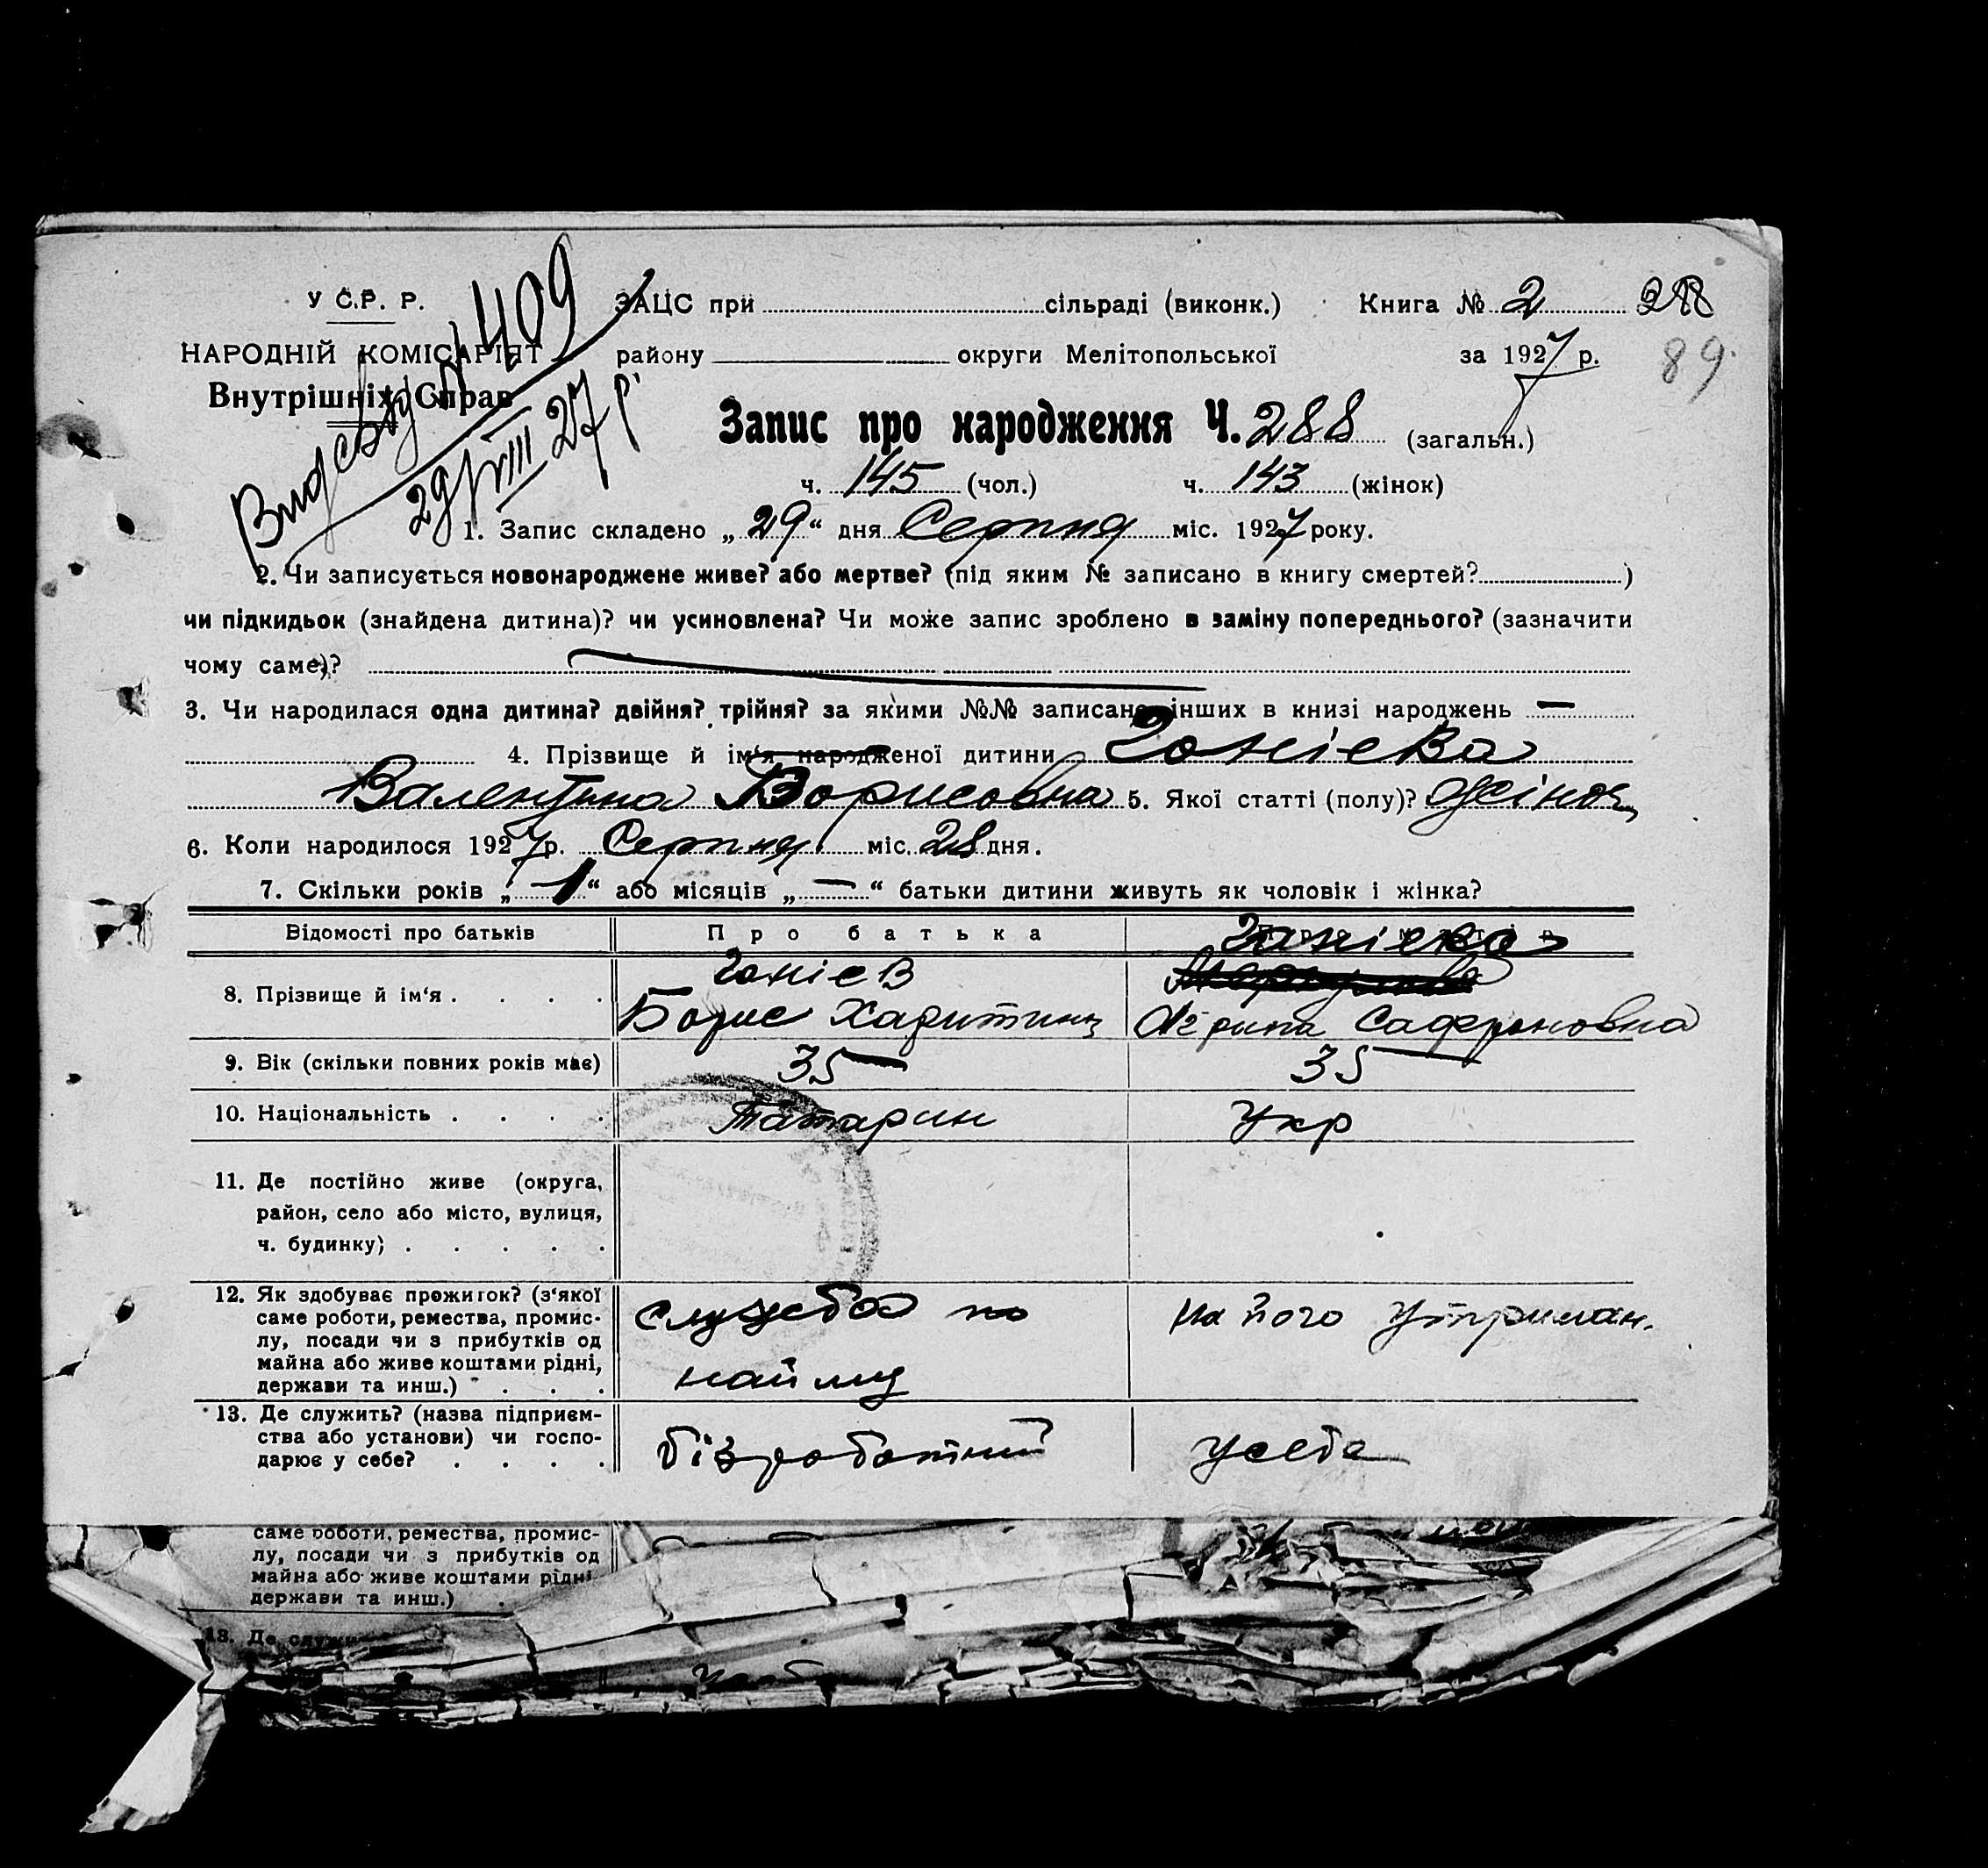 У С.Р. Р.
НАРОДНІЙ КОМІСАРІЯТ
Внутрішніх Справ
409
29/VIII 27 р.
ЗАЦС при сільраді (виконк.) Книга № 2 288
району округи Мелітопольської за 1927 р. 89
Запис про народження Ч. 288 (загальн.)
ч. 145 (чол.) ч. 143 (жінок)
1. Запис складено „ 29 “ дня Серпня міс. 1927 року.
2. Чи записується новонароджене живе? або мертве? (під яким № записано в книгу смертей? )
чи підкидьок (знайдена дитина)? чи усиновлена? Чи може запис зроблено в заміну попереднього? (зазначити
чому саме)?
3. Чи народилася одна дитина? двійня? трійня? за якими №№ записано інших в книзі народжень —
4. Прізвище й ім‘я народженої дитини Гонієва
Валентина Борисовна 5. Якої статті (полу)? Жіноч
6. Коли народилося 1927 р. Серпня міс. 28 дня.
7. Скільки років „ 1 “ або місяців „ — “ батьки дитини живуть як чоловік і жінка?
Відомості про батьків Про батька Про матір
Гонієва
8. Прізвище й ім‘я . . . . Гонієв
Борис Харитин Сафроновна
9. Вік (скільки повних років має) 35 35
10. Національність . . . . Татарин Укр
11. Де постійно живе (округа,
район, село або місто, вулиця,
ч. будинку) . . . . .
12. Як здобуває прожиток? (з‘якої
саме роботи, ремества, промис-
лу, посади чи з прибутків од
майна або живе коштами рідні,
держави та инш.) . . .
служба по на його утриман.
найму
13. Де служить? (назва підприєм-
ства або установи) чи госпо-
дарює у себе? . . . .
бізработний усебе
саме роботи, ремества, промис-
лу, посади чи з прибутків од
майна або живе коштами рідні,
держави та инш.) .
13. Де служи